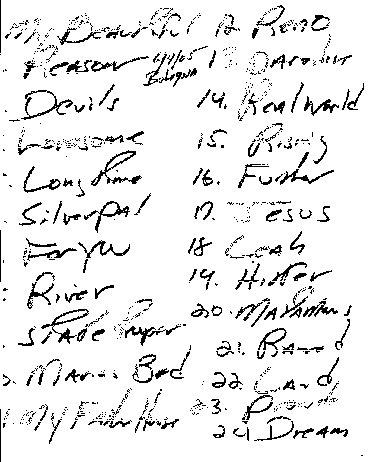 My Beautiful
Reason 6/4/05
Bologna
Devils
Lonesome
Long Time
Silver Pal
For You
River
State Trooper
Maria's Bed
My Father House
12 Reno
13. Paradise
14. Real World
15. Rising
16. Further
17. Jesus
18 Leah
19. Hitter
20. Matamoros
21. Ramrod
22 Land
23. Promised
24 Dream